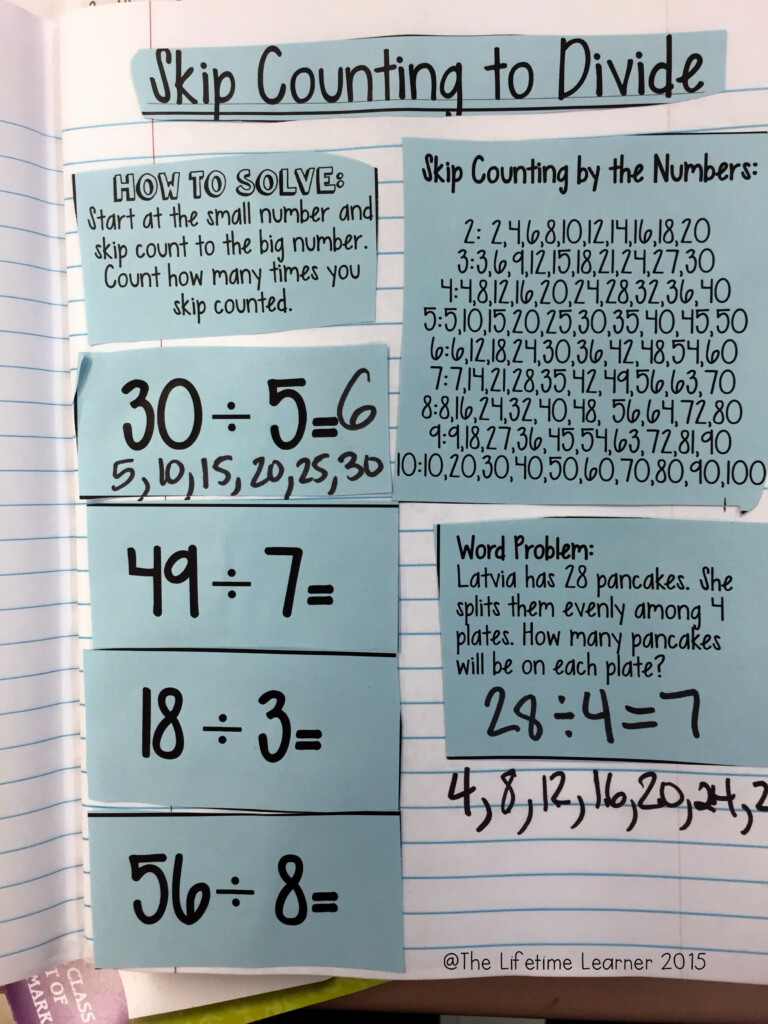 Skip Counting to Divide
HOW TO SOLVE:
Start at the small number and
skip count to the big number.
Count how many times you
skip counted.
30 ÷ 5=6
5, 10, 15, 20, 25, 30
49 ÷ 7=
18 ÷ 3=
56 ÷ 8=
Skip Counting by the Numbers:
2: 2,4,6,8,10,12,14,16,18,20
3:3,6,9,12,15,18,21,24,27,30
4:4,8,12,16,20,24,28,32,36,40
5:5,10,15,20,25,30,35,40,45,50
6:6,12,18,24,30,36,42,48,54,60
7:7,14,21,28,35,42,49,56,63,70
8:8,16,24,32,40,48, 56,64,72,80
9:9,18,27,36,45,54,63,72,81,90
10:10,20,30,40,50,60,70,80,90,100
Word Problem:
Latvia has 28 pancakes. She
splits them evenly among 4
plates. How many pancakes
will be on each plate?
28÷4=7
4, 8, 12, 16, 20, 24, 2
@The Lifetime Learner 2015
CLASS
T OF
MARK